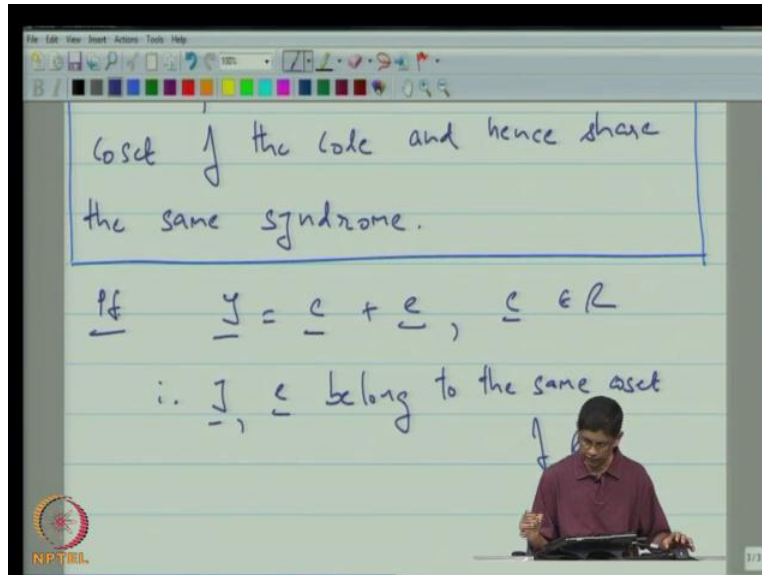 File Edit View Insert Actions Tools Help
100%
B I
coset of the code and hence share
the same syndrome.
Pf y = c + e, c ∈ C
∴ y, e belong to the same coset
of
NPTEL
3/3